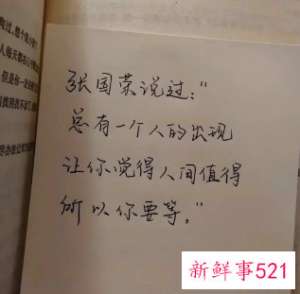 张国荣说过:“
总有一个人的出现
让你觉得人间值得
所以你要等。”
新鲜事521